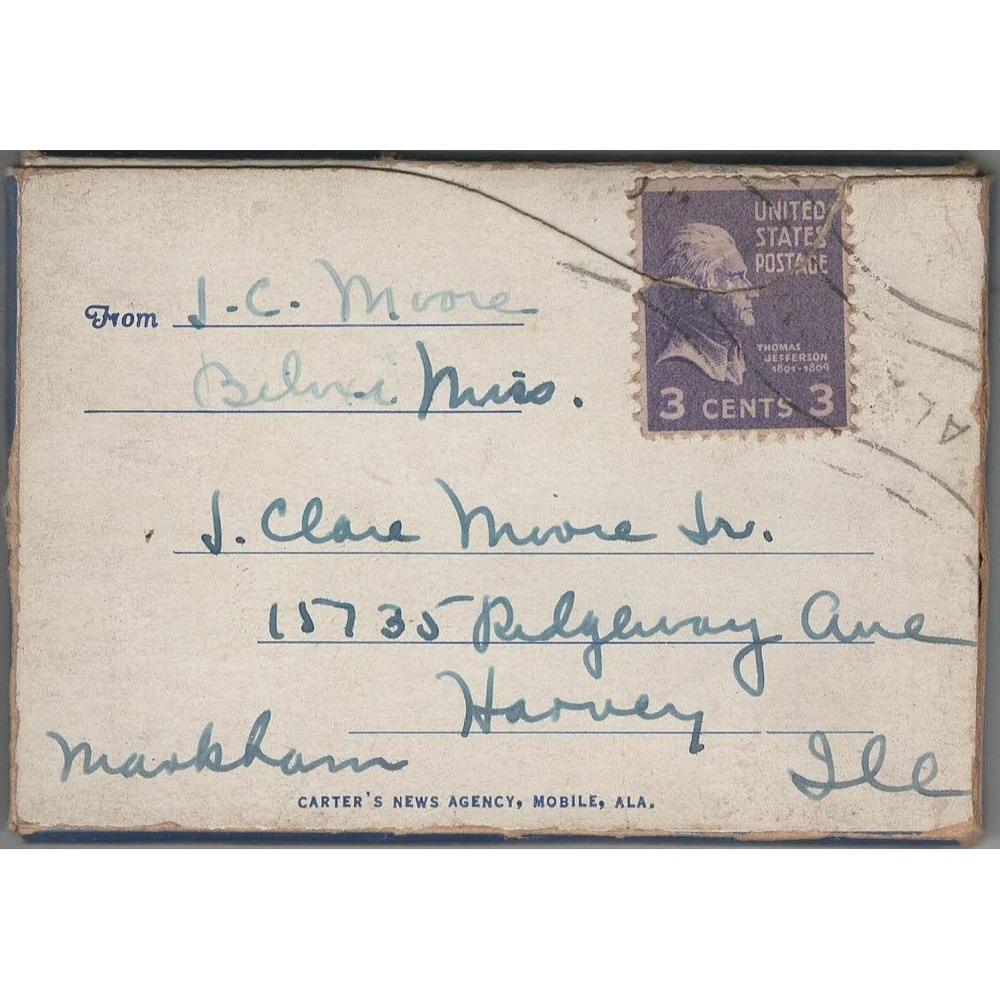 UNITED
STATES
POSTAGE
THOMAS
JEFFERSON
1801-1809
3 CENTS 3
From J. C. Moore
Biloxi Miss.
J. Clare Moore Jr.
15735 Ridgeway Ave
Harvey
Markham Ill
CARTER'S NEWS AGENCY, MOBILE, ALA.